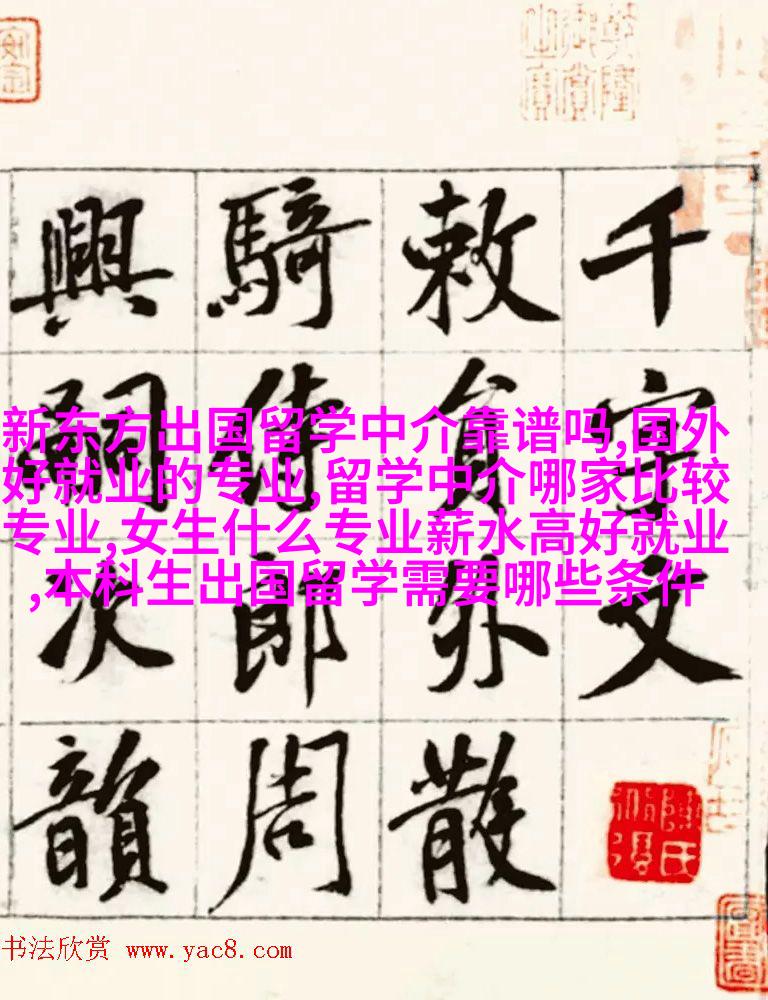 千字文
敕員外散
騎侍郎周
興嗣次韻
新东方出国留学中介靠谱吗,国外
好就业的专业,留学中介哪家比较
专业,女生什么专业薪水高好就业
,本科生出国留学需要哪些条件
书法欣赏 www.yac8.com